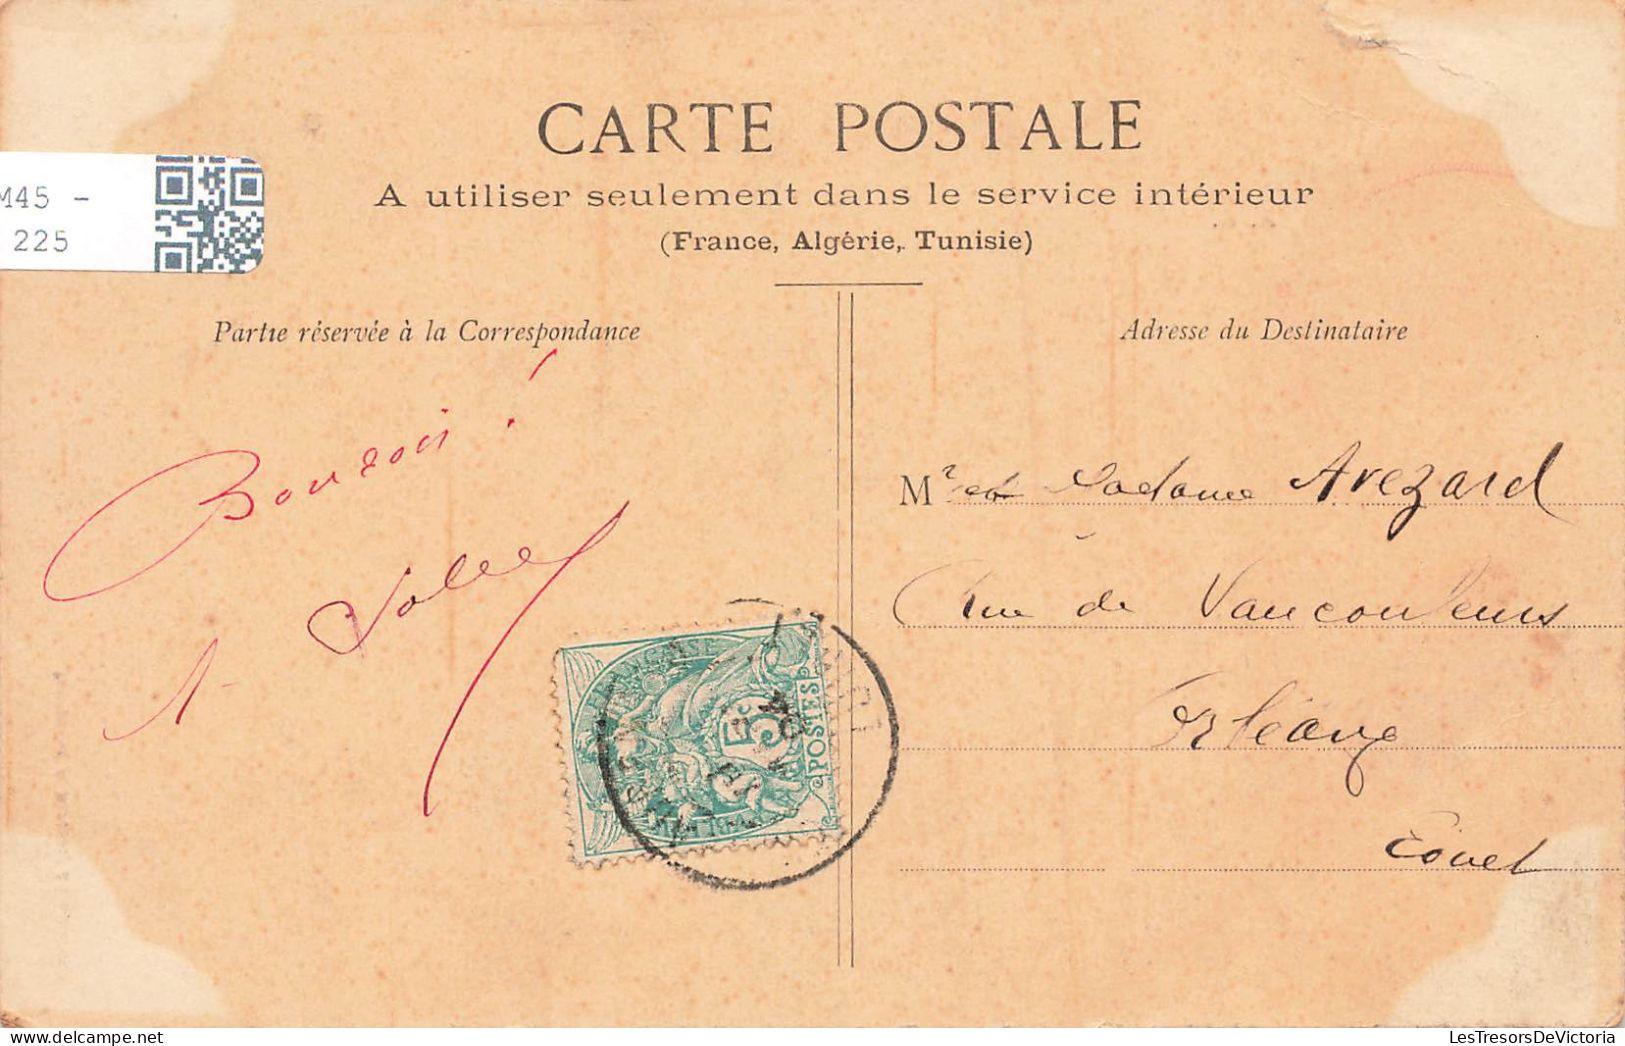 CARTE POSTALE
A utiliser seulement dans le service intérieur
(France, Algérie, Tunisie)
M45 -
225
Partie réservée à la Correspondance
Bonsoir !
A.
Adresse du Destinataire
Mr et Madame Avezard
rue de Vaucouleurs
Orléans
Loiret
5c
POSTES
LesTresorsDeVictoria